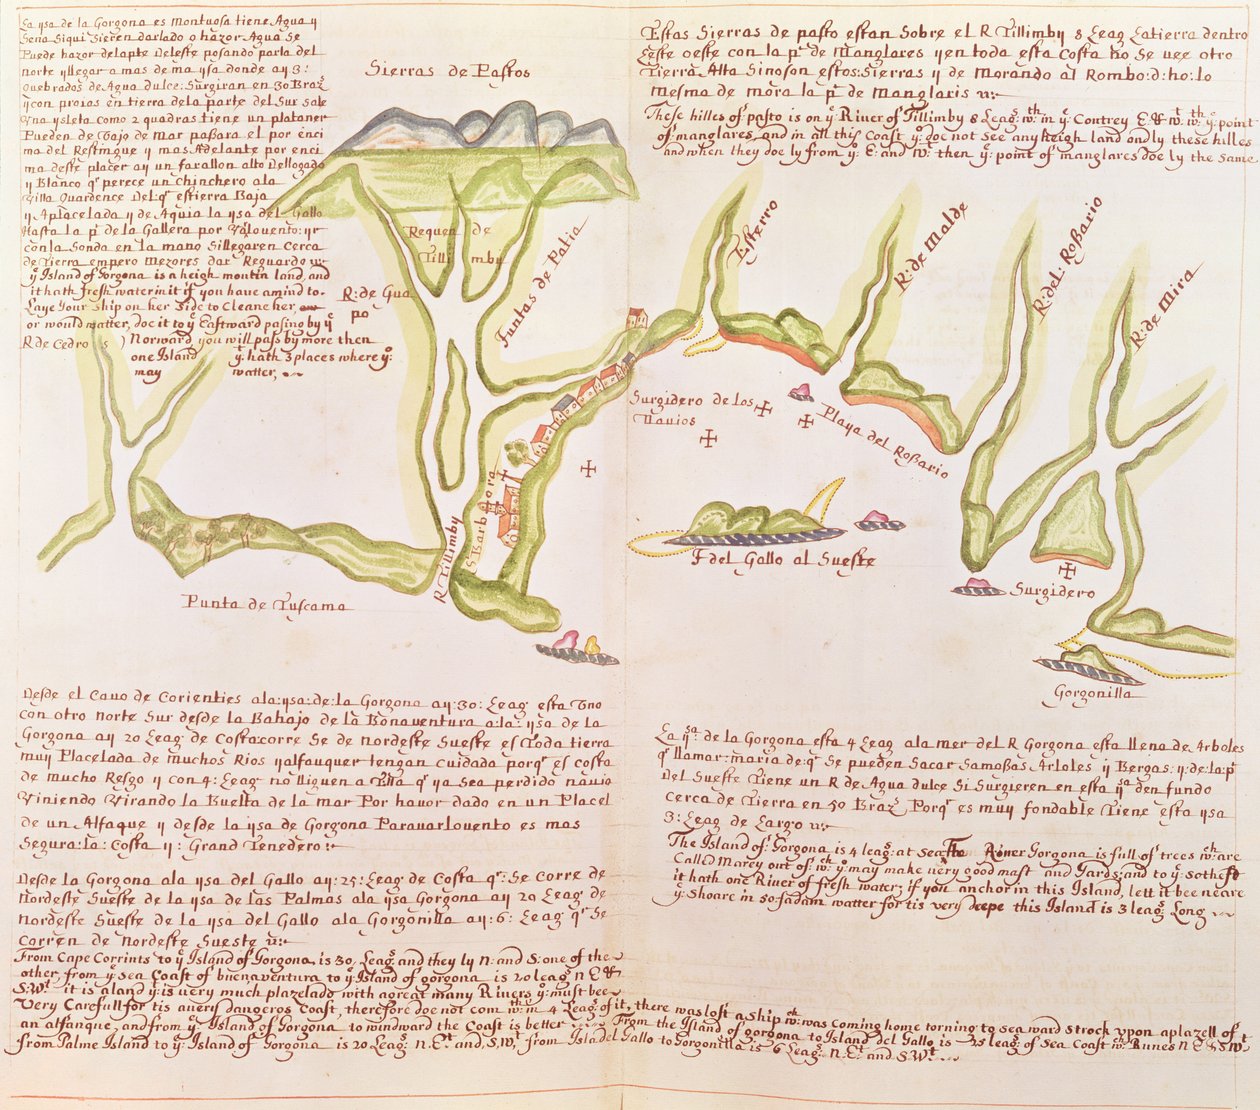 La ysa de la Gorgona es Montuosa tiene Agua y
Sena Siqui Sieren darlado o hazor Agua Se
Puede hazor delapte Deleste pasando parla del
norte y llegar a mas de ma ysa donde ay 3:
Quebrados de Agua dulce: Surgiran en 30 Braz
y con proias en tierra dela parte del Sur sale
Vna ysleta como 2 quadras tiene un plataner
Pueden de Vajo de Mar paßara el por enci
ma del Restingue y mas Adelante por enci
ma deste placer ay un farallon alto Dellogado
y Blanco qe perece un Chinchero ala
Villa Quardence Del qe estierra Baja
y Aplacelada y de Aquia la ysa del Gallo
Hasta la pe de la Gallera por Valouento: yr
con la Sonda en la mano Sillegaren cerca
de Tierra empero Mezores dar Reguardo
ye Island of Gorgona is a heigh moutin land, and
it hath fresh water in it if you have a mind to
Laye Your ship on her Side to Clean cher,
or would watter, doe it to ye Eastward pasing by ye
Norward, you will pass by more then
one Island ye: hath 3 places where ye:
may watter,
Sierras de Pastos
Estas Sierras de pasto estan Sobre el R Tillimby 8 Leag Latierra dentro
Leste oeste con la pe de Manglares y en toda esta Costa no Se vee otro
Tierra Alta Sinoson estos: Sierras y de Morando al Rombo: d: ho: lo
mesma de mora la pe de Manglaris
These hilles of pasto is on ye River of Tillimby 8 Leags: wth in ye Contrey E & Wt wth ye: point
of manglares, and in all this Coast ye: doe not see any heigh land ondly these hilles
and when they doe ly from ye: E: and Wt: then ye: point of manglares doe ly the same
Requen de
Tillimby
R: de Gua
po
Funtas de Patia
R de Cedros
Esterro
R: de Malde
R: del: Roßario
R: de Mira
Surgidero de los
Nauios
Playa del Roßario
R Tillimby
S Barbora
Punta de Tuscama
I del Gallo al Sueste
Surgidero
Gorgonilla
Desde el Cauo de Corienties ala: ysa: de: la Gorgona ay: 30: Leag esta Vno
con otro norte Sur desde la Bahajo de la Bonaventura a: la: ysa de la
Gorgona ay 20 Leag de Costa: corre Se de nordeste Sueste es Toda tierra
muy Placelada de muchos Rios y alfauquer tengan cuidado porqe es costa
de mucho Resgo y con 4: Leag no lliguen a Vna qe ya Sea perdido nauio
Viniendo Virando la Buelta de la mar Por hauor dado en un Placel
de un Alfaque y desde la ysa de Gorgona Parauarlouento es mas
Segura: la: Costa y: Grand Tenedero:
Desde la Gorgona ala ysa del Gallo ay: 25: Leag de Costa qe: Se Corre de
nordeste Sueste de la ysa de las Palmas ala ysa Gorgona ay 20 Leag de
nordeste Sueste de la ysa del Gallo ala Gorgonilla ay: 6: Leag qe Se
Corren de nordeste Sueste
From Cape Corrints to ye Island of Gorgona is 30, Leags and they ly N: and S: one of the
other, from ye Sea Coast of buenaventura to ye: Island of gorgona is 20 leags N E &
S Wt it is a land ye: is very much plazelado with a great many Rivers ye: must bee
Very Carefull for tis a very dangeros Coast, therefore doe not com wth: in 4 Leags of it, there was lost a Ship wch: was Coming home torning to sea ward strock vpon a plazell of
an alfanque, and from ye: Island of Gorgona to windward the Coast is better From the Island of gorgona to Island del Gallo is 25 leags: of Sea Coast wch: Runes N E & S Wt
from Palme Island to ye: Island of Gorgona is 20 Leags: N: Et: and, S, Wt, from Isla del Gallo to Gorgonilla is 6 Leags: N: Et: and S: Wt
La ysa: de la Gorgona esta 4 Leag ala mer del R Gorgona esta llena de Arboles
qe llamar: maria de: qe Se pueden Sacar Samoßas Arboles y Bergas: y: de: la: pe
Del Sueste Tiene un R de Agua dulce Si Surgieren en esta ysa den fundo
Cerca de Tierra en 50 Braz Porqe es muy fondable Tiene esta ysa
3: Leag de Largo
The Island of: Gorgona is 4 leags: at sea The River Gorgona is full of trees wch: are
Called Marey out of: wch ye: may make very good mast and Yards, and to ye: Sothest
it hath one River of fresh water; if you anchor in this Island, lett it bee neare
ye: Shoare in 50 fadam watter for tis very deepe this Island is 3 leags: Long